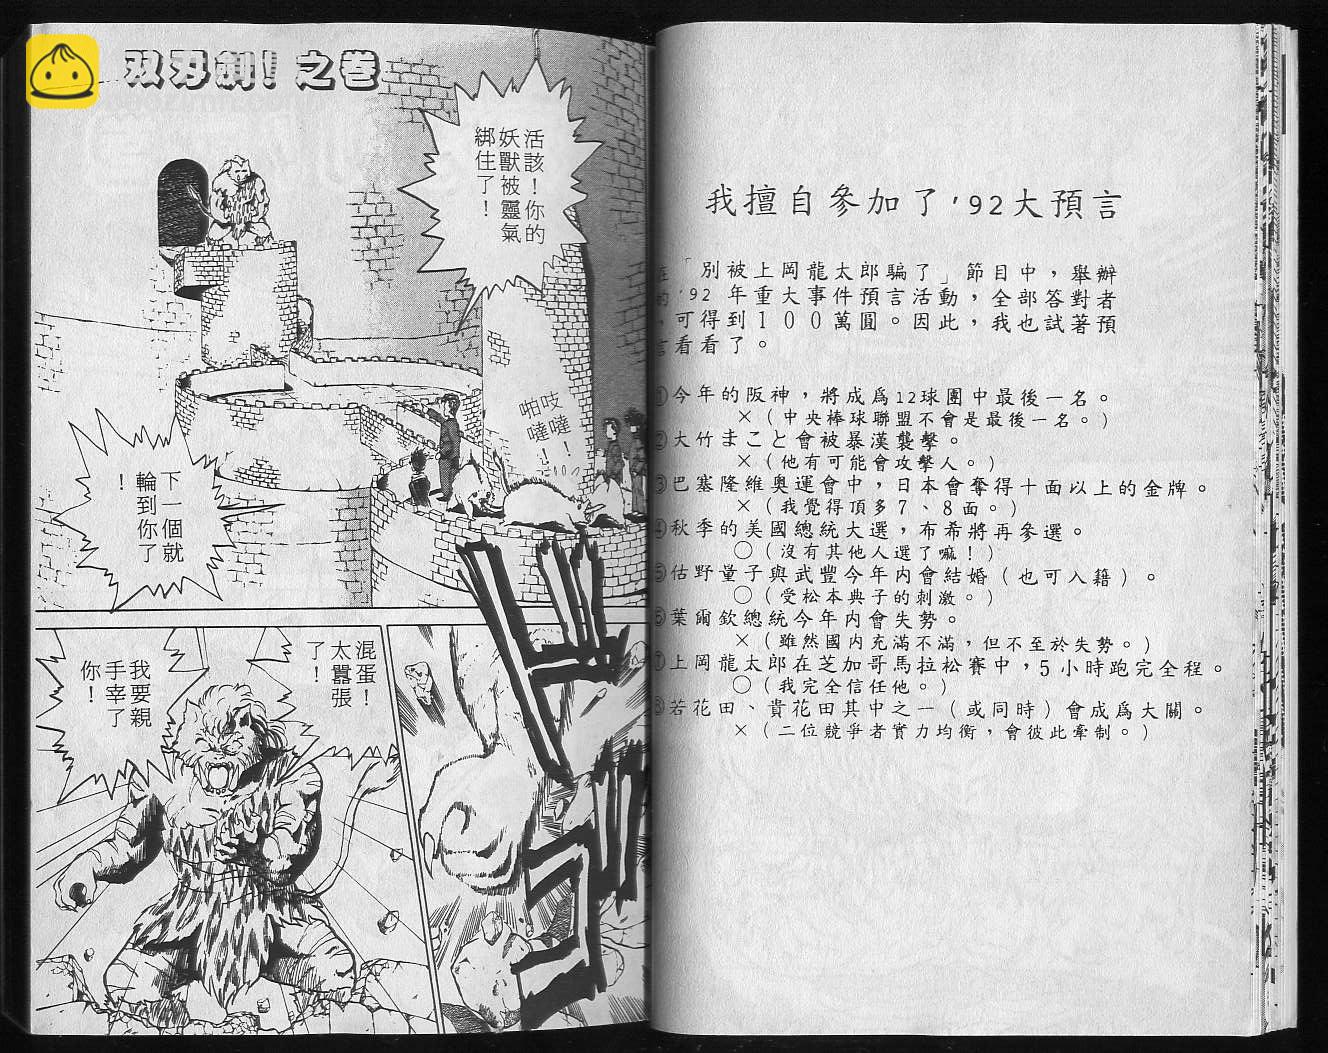 我擅自參加了’92大預言
「別被上岡龍太郎騙了」節目中，舉辦
’92 年重大事件預言活動，全部答對者
，可得到１００萬圓。因此，我也試著預
言看看了。
①今年的阪神，將成爲12球團中最後一名。
×（中央棒球聯盟不會是最後一名。）
②大竹まこと會被暴漢襲擊。
×（他有可能會攻擊人。）
③巴塞隆維奧運會中，日本會奪得十面以上的金牌。
×（我覺得頂多７、８面。）
④秋季的美國總統大選，布希將再參選。
○（沒有其他人選了嘛！）
⑤佑野量子與武豐今年内會結婚（也可入籍）。
○（受松本典子的刺激。）
⑥葉爾欽總統今年内會失勢。
×（雖然國内充滿不滿，但不至於失勢。）
⑦上岡龍太郎在芝加哥馬拉松賽中，５小時跑完全程。
○（我完全信任他。）
⑧若花田、貴花田其中之一（或同時）會成爲大關。
×（二位競爭者實力均衡，會彼此牽制。）
双刃劍！之卷
活該！你的
妖獸被靈氣
綁住了！
吱噠！
啪噠！
下一個就
輪到你了
！
混蛋！
太囂張
了！
我要親
手宰了
你！